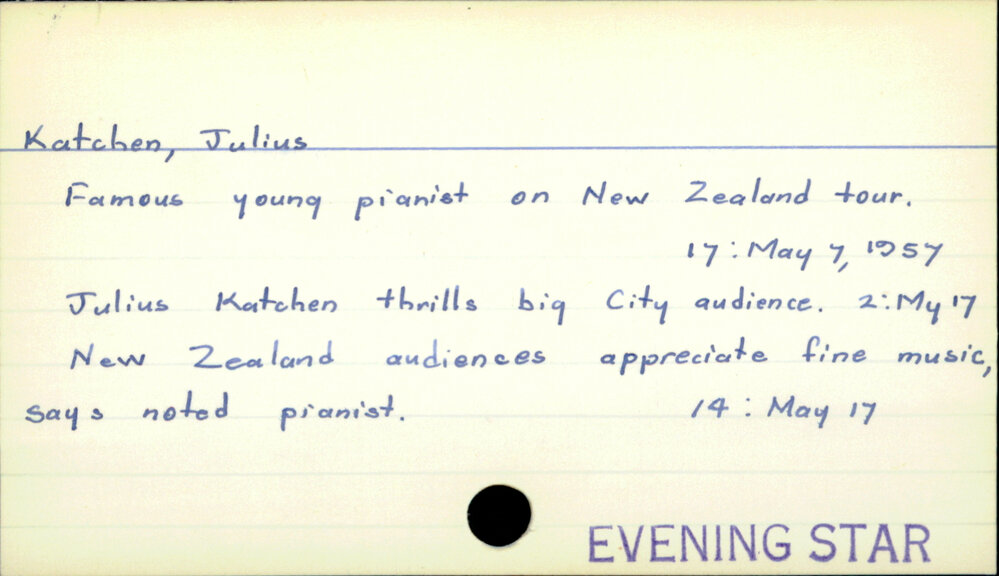 Katchen, Julius
Famous young pianist on New Zealand tour.
17: May 7, 1957
Julius Katchen thrills big City audience. 2: My 17
New Zealand audiences appreciate fine music,
says noted pianist. 14: May 17
EVENING STAR